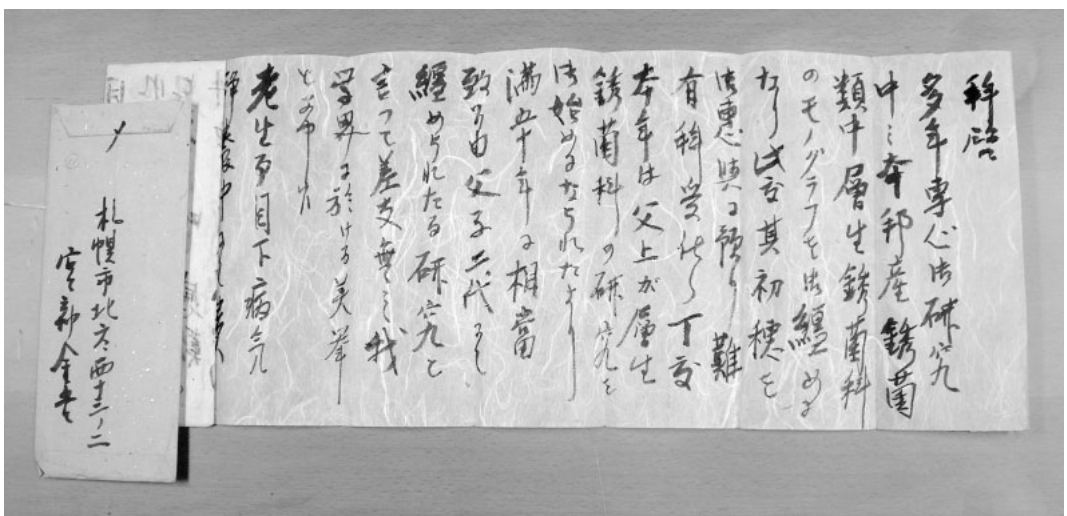 拝啓
多年専心御研究
中之本邦産銹菌
類中層生銹菌科
のモノグラフを御纏め
なり此度其初穂を
御恵与に預り難
有拝受仕候丁度
本年は父上が層生
銹菌科の研究を
御始めなられたより
満五十年に相當
致候由父子二代にて
纏められたる研究と
言って差支無之我
学界に於ける美挙
と存申候
老生事目下病気
〆
札幌市北六西十三ノ二
宮部金吾